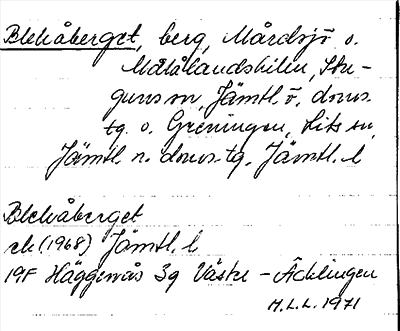 Blekåberget, berg, Mårdsjö o.
Mälålandskilen, Stu-
guns sn, Jämtl. ö. doms.
tg. o. Greningen, Hits sn,
Jämtl. n. doms. tg. Jämtl. l
Blekåberget
ek (1968) Jämtl. l
19F Häggenås 3g Västre - Äcklingen
M.L.L. 1971